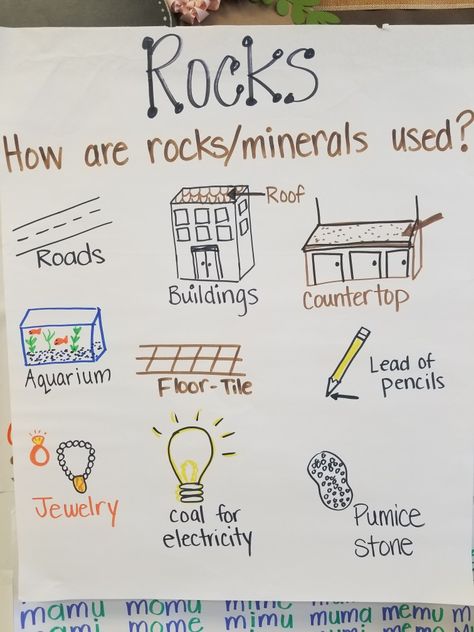 Rocks
How are rocks/minerals used?
Roof
Roads
Buildings
Countertop
Aquarium
Floor-Tile
Lead of
pencils
Jewelry
coal for
electricity
Pumice
stone
mamu momu mimu muma memu
mome mimu